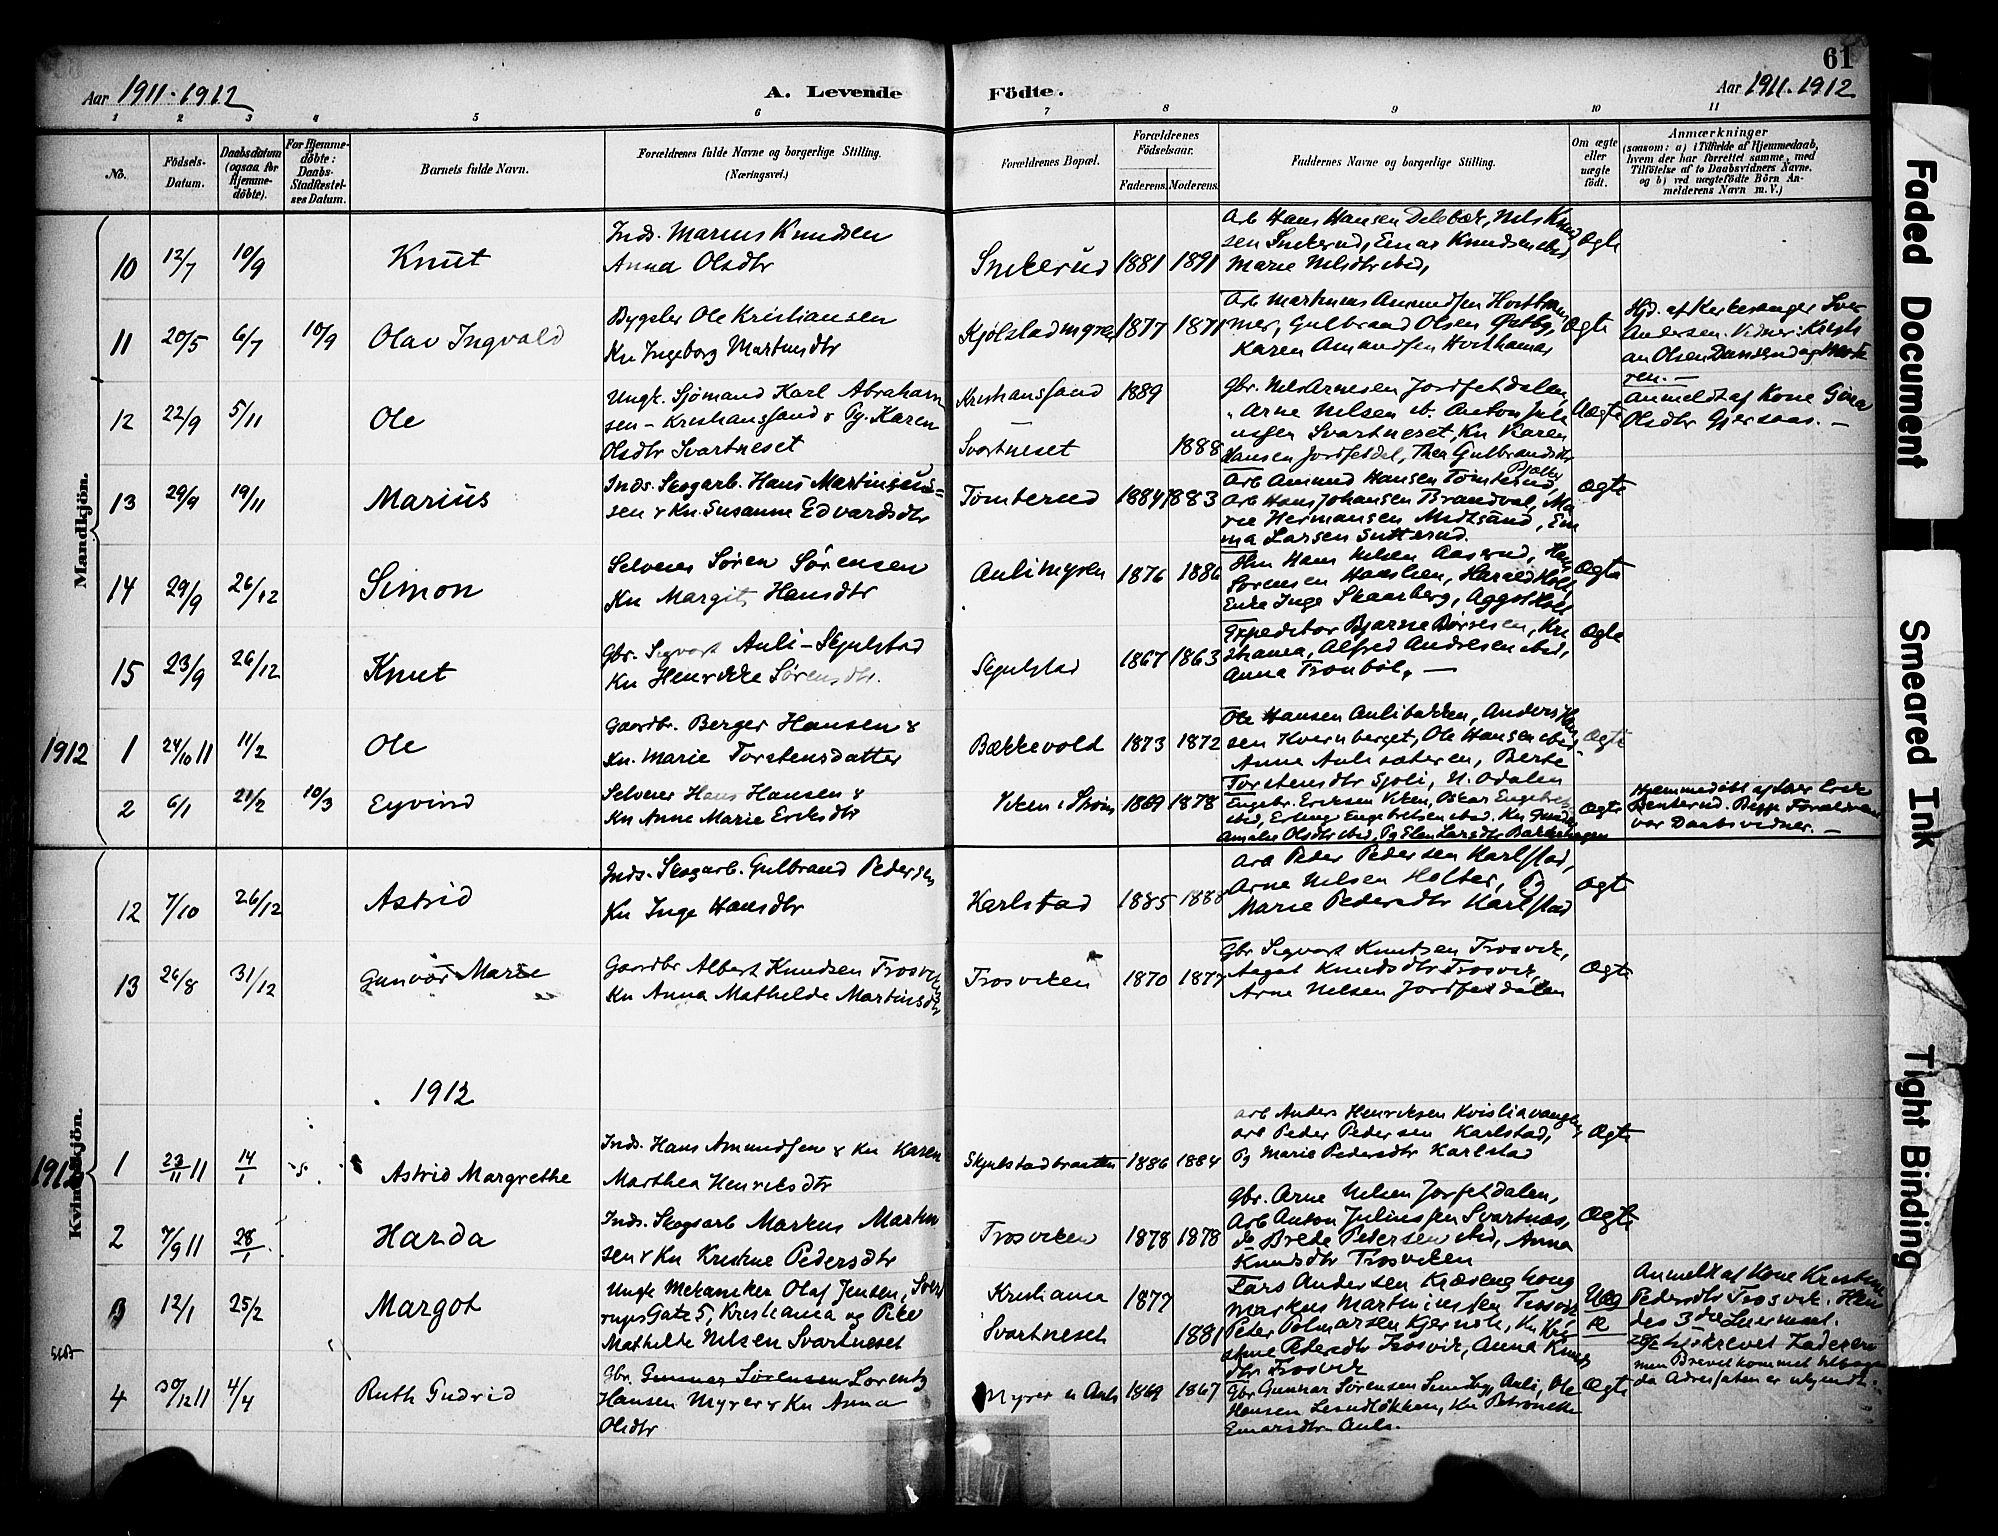 61
Aar 1911-1912
A. Levende
Födte.
Aar 1911-1912
1 2 3 4 5 6 7 8 9 10 11
No.
Födsels-Datum.
Daabsdatum (ogsaa for Hjemme-döbte).
For Hjemme-döbte: Daabs-Stadfæstel-ses Datum.
Barnets fulde Navn.
Forældrenes fulde Navne og borgerlige Stilling.
(Næringsvei.)
Forældrenes Bopæl.
Forældrenes Födselsaar.
Faderens. Moderens.
Faddernes Navne og borgerlige Stilling.
Om ægte eller uægte født.
Anmærkninger
(saasom: a) i Tilfælde af Hjemmedaab, hvem der har forrettet samme, med Tilföielse af to Daabsvidners Navne, og b) ved uægtefödte Börn An-melderens Navn m. V.)
Mandkjön.
10 12/7 10/9 Knut
Inds. Marius Knudsen
Anna Olsdtr
Snekerud 1881 1891
Arb Hans Hansen Delsbæk, Nils Knud
sen Snekerud, Einar Knudsen ibid
Marie Nilsdtr ibid,
Ægte
11 20/5 6/7 10/9 Olav Ingvald
Bygsler Ole Kristiansen
Kn Ingeborg Martinsdtr
Kjølstadmyren 1877 1871
Arb Martinus Amundsen Hostham
mer, Gulbrand Olsen Østby,
Karen Amundsen Hosthamar
Ægte
Hjd. af Kirkesanger Iver
Andersen. Vidner: Kristi
an Olsen
12 22/9 5/11 Ole
Ungk. Sjømand Karl Abraham
sen - Kristiansand & Pg. Karen
Olsdtr Svartneset
Kristiansand 1889
Svartneset 1888
Gbr. Nils Arnesen Jordfetdalen,
" Arne Nilsen ib. Anton Juli
ussen Svartneset, Kn Karen
Hansen Jordfetdal, Thea Gulbrandsdtr
Uægte
Anmeldt af Kone Gina
Olsdtr Gjersaas. -
13 29/9 19/11 Marius
Inds. Skogarb. Hans Martinius-
sen & Kn. Susanne Edvardsdtr
Tomterud 1884 1883
Arb Amund Hansen Tomterud,
Arb Hans Johansen Brandval, Ma
rie Hermansen Midtsund, Em
ma Larsen Sutterud.
Ægte
14 29/9 26/12 Simon
Selveier Søren Sørensen
Kn Margit Hansdtr
Aulimyren 1876 1886
Hm Hans Nilsen Aaserud, Hans
Sørensen Haaslien, Harald Holt,
Enke Inge Skaarberg, Aggot Holt
Ægte
15 23/9 26/12 Knut
Gbr. Sigvart Auli-Skjulstad
Kn Henrikke Sørensdtr.
Skjulstad 1867 1863
Expeditor Bjarne Børresen, Kri
stiania, Alfred Andresen ibid,
Anna Tronbøl. -
Ægte
1912 1 24/10 11 11/2 Ole
Gaardbr. Berger Hansen &
Kn. Marie Torstensdatter
Bækkevold 1873 1872
Ole Hansen Aulibakken, Anders Han
sen Kvernberget, Ole Hansen ibid.
Anna Aulisæteren, Berte
Torstensdtr Sjoli, N. Odalen
Ægte
2 6/1 21/2 10/3 Eyvind
Selveier Hans Hansen &
Kn Anne Marie Eriksdtr
Viken i Strøm 1869 1878
Engebr. Eriksen Viken, Oskar Engebret
ibid, Erling Engebretsen ibid.
Amalie Olsdtr ibid, Pg Elen Larsdtr Bakkehagen
Ægte
Hjemmedøbt af
var Daabsvidner. -
Kvindekjön.
12 7/10 26/12 Astrid
Inds. Skogarb. Gulbrand Pedersen
Kn Inge Hansdtr
Karlstad 1885 1888
Arb Peder Pedersen Karlstad,
Arne Nilsen Holter, Pg
Marie Pedersdtr Karlstad
Ægte
13 26/8 31/12 Gunvor Marie
Gaardbr Albert Knudsen Trosvik
Kn Anna Mathilde Martinsdtr
Trosviken 1870 1877
Gbr Sigvart Knutsen Trosvik,
Aagot Knudsdtr Trosvik,
Arne Nilsen Jordfetdalen
Ægte
1912
1912 1 23/11 11 14/1 Astrid Margrethe
Inds. Hans Amundsen & Kn Karen
Marthea Henriksdtr
Skjulstadbraaten 1886 1884
Arb Anders Henriksen Kvisliavangen,
Arb Peder Pedersen Karlstad,
Pg Marie Pedersdtr Karlstad
Ægte
2 7/9 11 28/1 Harda
Inds. Skogsarb Markus Martin
sen & Kn Kristine Pedersdtr
Trosviken 1878 1878
Gbr. Arne Nilsen Jorfetdalen,
Arb Anton Juliussen Svartnæs,
do Brede Petersen ibid, Anna
Knudsdtr Trosviken
Ægte
3 12/1 25/2 Margot
Ungk Mekaniker Olaf Jensen, Sver
rupsGate 5, Kristiania og Pike
Mathilde Nilsen Svartneset
Kristiania 1877
Svartneset 1881
Lars Andersen
Markus Martiniussen Trosvik,
Peter
stine Pedersdtr Trosvik, Anna Knuds
dtr Trosvik
Uæg
te
Anmeldt af Kone Kristine
Pedersdtr Trosvik.
men Brevet kommet tilbage
da Adressaten er ukjendt.
4 30/12 11 4/4 Ruth Gudrid
Gbr. Gunnar Sørensen Lorentz
Hansen Myrer & Kn Anna
Olsdtr
Myrer u Auli 1869 1867
Gbr Gunnar Sørensen Sundby, Auli, Ole
Hansen Lesudløkken, Kn Petronelle
Einarsdtr Auli.
Ægte
Faded Document
Smeared Ink
Tight Binding